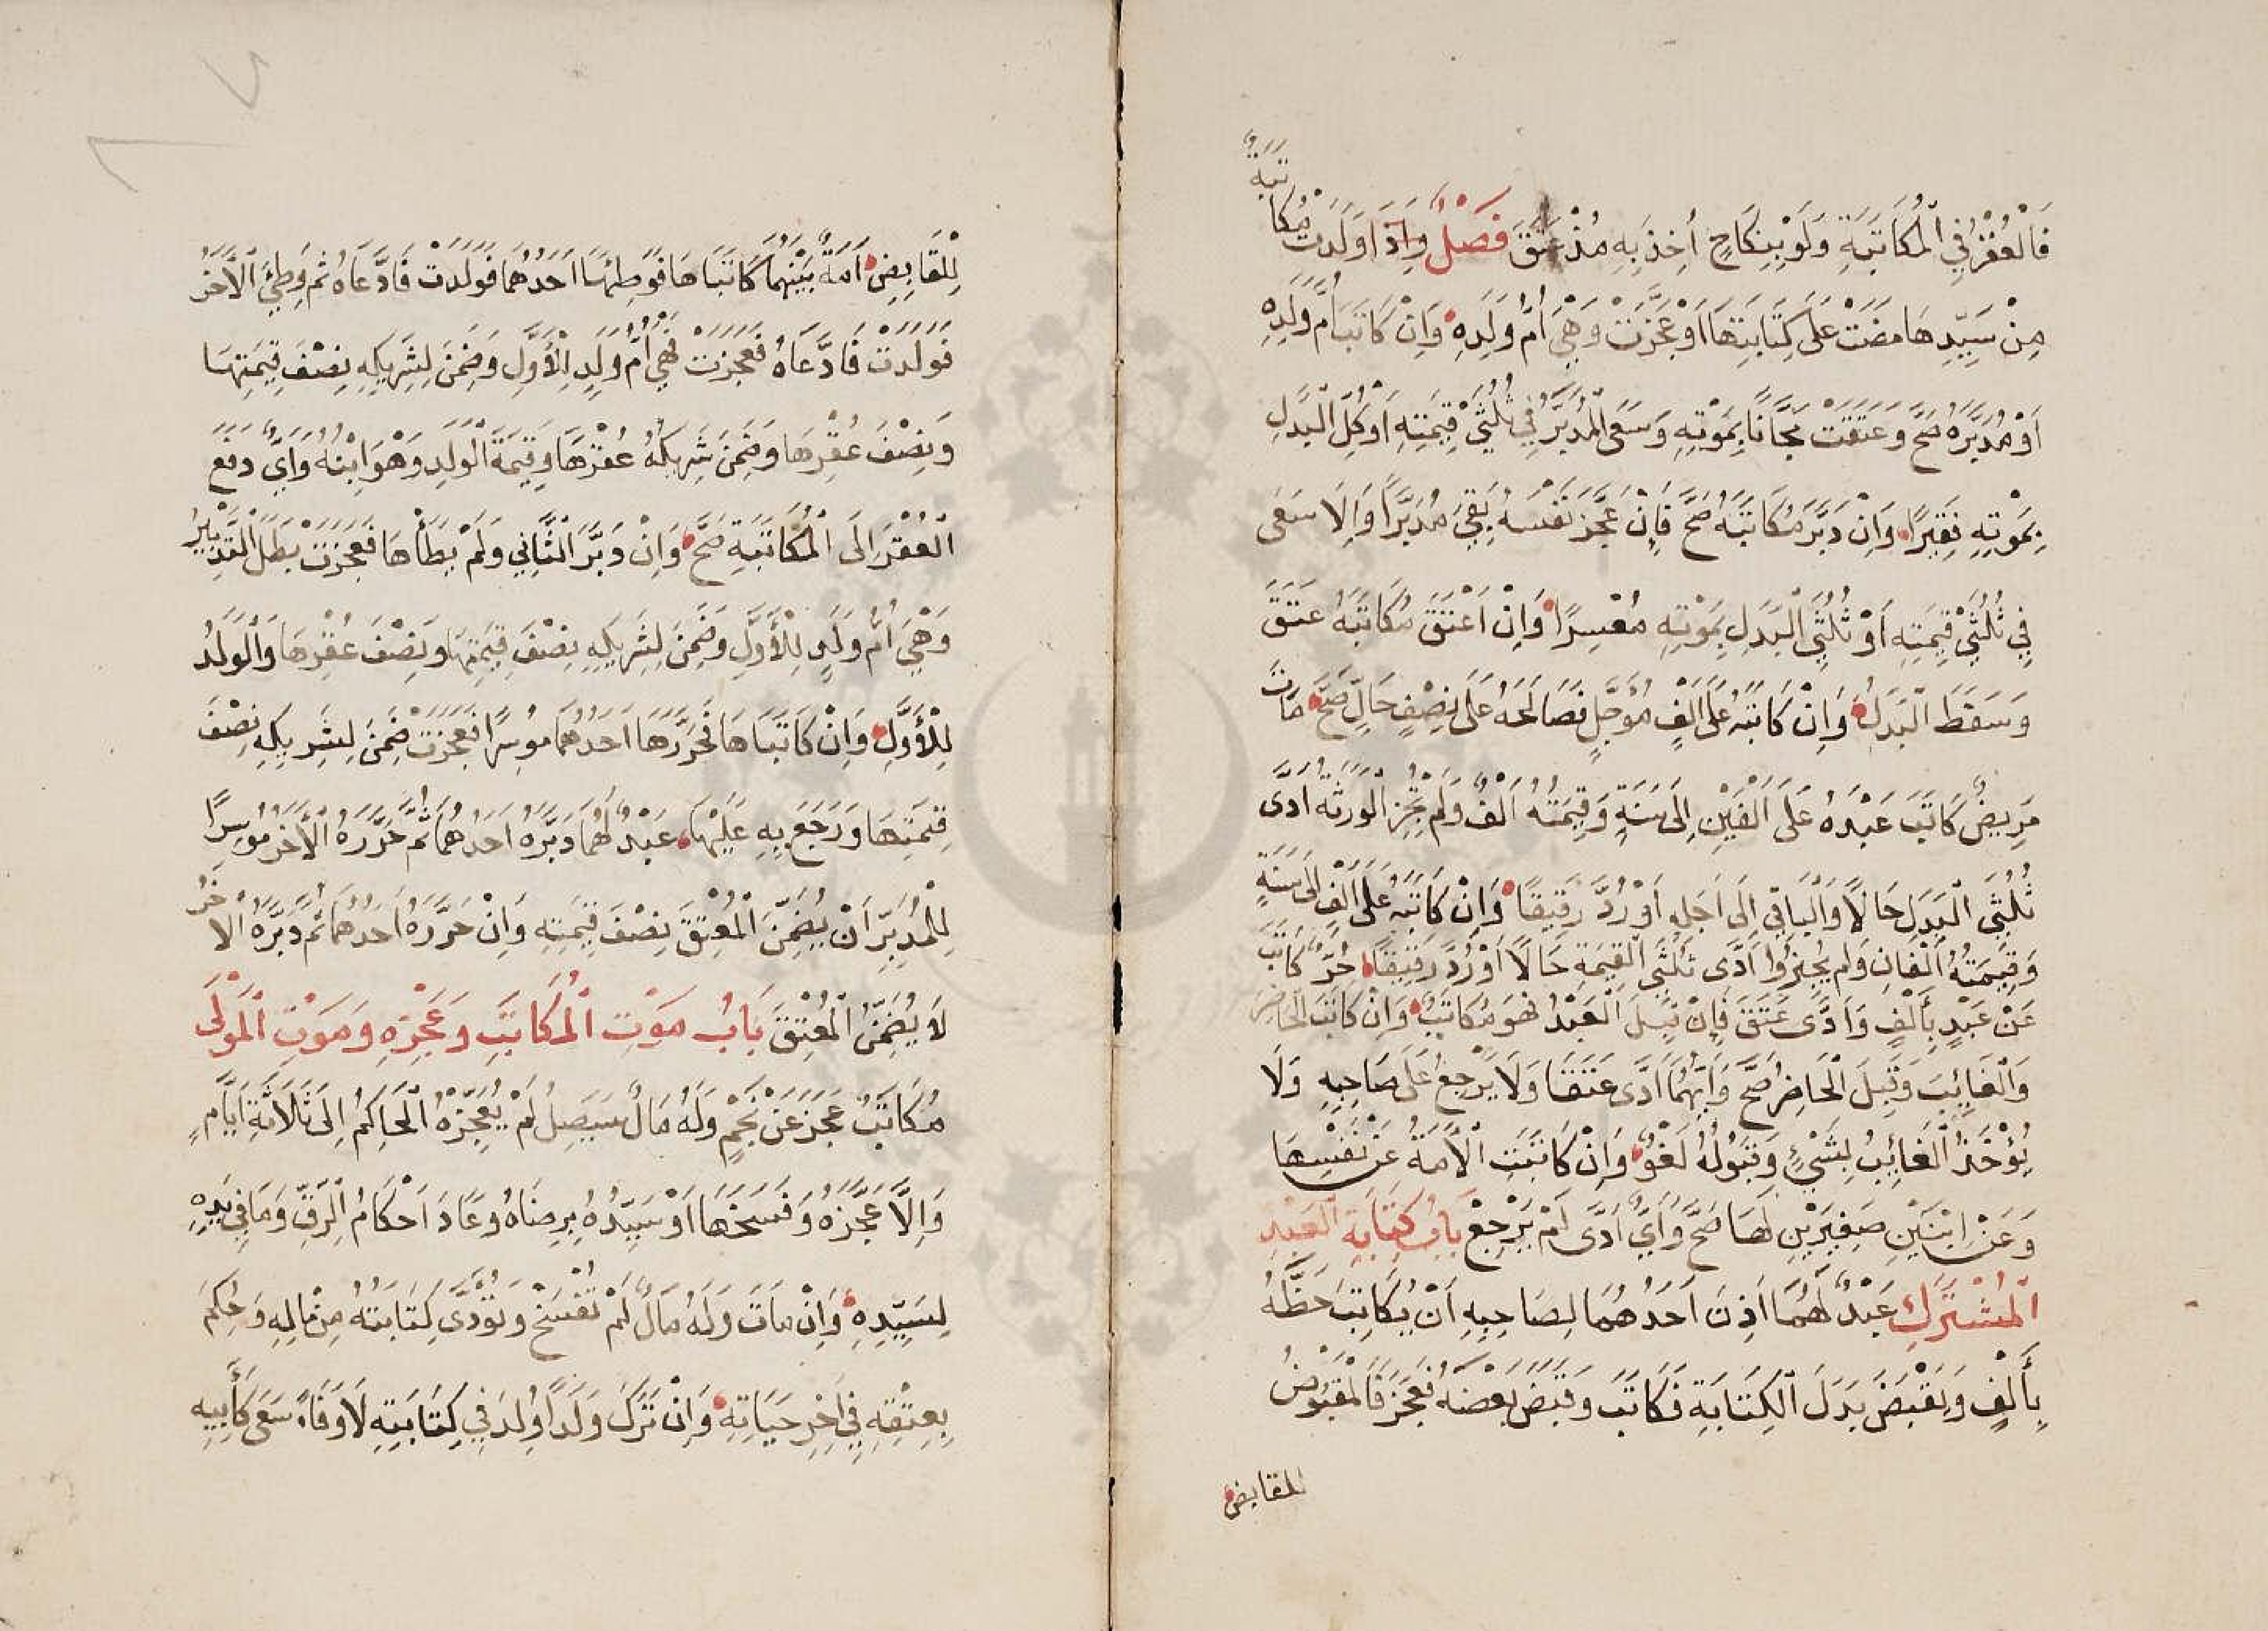 فَالْعُقْرُ فِي الْمُكَاتَبَةِ وَلَوْ بِنِكَاحٍ أُخِذَ بِهِ مُذْ عَتَقَ فَصْلٌ وَإِذَا وَلَدَتْ مُكَاتَبَةٌ
مِنْ سَيِّدِهَا مَضَتْ عَلَى كِتَابَتِهَا أَوْ عَجَزَتْ وَهِيَ أُمُّ وَلَدِهِ وَإِنْ كَاتَبَ أُمَّ وَلَدِهِ
أَوْ مُدَبَّرَهُ صَحَّ وَعَتَقَتْ مَجَّانًا بِمَوْتِهِ وَسَعَى الْمُدَبَّرُ فِي ثُلُثَيْ قِيمَتِهِ أَوْ كُلِّ الْبَدَلِ
بِمَوْتِهِ فَقِيرًا وَإِنْ دَبَّرَ مُكَاتَبَهُ صَحَّ فَإِنْ عَجَّزَ نَفْسَهُ بَقِيَ مُدَبَّرًا وَإِلَا سَعَى
فِي ثُلُثَيْ قِيمَتِهِ أَوْ ثُلُثَيِ الْبَدَلِ بِمَوْتِهِ مُعْسِرًا وَإِنْ أَعْتَقَ مُكَاتَبَهُ عَتَقَ
وَسَقَطَ الْبَدَلُ وَإِنْ كَاتَبَهُ عَلَى أَلْفٍ مُؤَجَّلٍ فَصَالَحَهُ عَلَى نِصْفٍ حَالٍّ صَحَّ مَاتَ
مَرِيضٌ كَاتَبَ عَبْدَهُ عَلَى أَلْفَيْنِ إِلَى سَنَةٍ وَقِيمَتُهُ أَلْفٌ وَلَمْ تُجِزِ الْوَرَثَةُ أَدَّى
ثُلُثَيِ الْبَدَلِ حَالًّا وَالْبَاقِي إِلَى أَجَلِهِ أَوْ رُدَّ رَقِيقًا وَإِنْ كَاتَبَهُ عَلَى أَلْفٍ إِلَى سَنَةٍ
وَقِيمَتُهُ أَلْفَانِ وَلَمْ يُجِيزُوا أَدَّى ثُلُثَيِ الْقِيمَةِ حَالًّا أَوْ رُدَّ رَقِيقًا حُرٌّ كَاتَبَ
عَنْ عَبْدٍ بِأَلْفٍ وَأَدَّى عَتَقَ فَإِنْ قَبِلَ الْعَبْدُ فَهُوَ مُكَاتَبٌ وَإِنْ كَاتَبَ الْحَاضِرَ
وَالْغَائِبَ وَقَبِلَ الْحَاضِرُ صَحَّ وَأَيُّهُمَا أَدَّى عَتَقَا وَلَا يَرْجِعُ عَلَى صَاحِبِهِ وَلَا
يُؤْخَذُ الْغَائِبُ لِشَيْءٍ وَقَبُولُهُ لَغْوٌ وَإِنْ كَاتَبَتِ الْأَمَةُ عَنْ نَفْسِهَا
وَعَنِ ابْنَيْنِ صَغِيرَيْنِ لَهَا صَحَّ وَأَيٌّ أَدَّى لَمْ يَرْجِعْ بَابُ كِتَابَةِ الْعَبْدِ
الْمُشْتَرَكِ عَبْدٌ لَهُمَا أَذِنَ أَحَدُهُمَا لِصَاحِبِهِ أَنْ يُكَاتِبَ حَظَّهُ
بِأَلْفٍ وَيَقْبَضَ بَدَلَ الْكِتَابَةِ فَكَاتَبَ وَقَبَضَ بَعْضَهُ فَعَجَزَ فَالْمَقْبُوضُ
للقابض
لِلْقَابِضِ أَمَةٌ بَيْنَهُمَا كَاتَبَاهَا فَوَطِئَهَا أَحَدُهُمَا فَوَلَدَتْ فَادَّعَاهُ ثُمَّ وَطِئَ الْآخَرُ
فَوَلَدَتْ فَادَّعَاهُ فَعَجَزَتْ فَهِيَ أُمُّ وَلَدِ الْأَوَّلِ وَضَمِنَ لِشَرِيكِهِ نِصْفَ قِيمَتِهَا
وَنِصْفَ عُقْرِهَا وَضَمِنَ شَرِيكُهُ عُقْرَهَا وَقِيمَةَ الْوَلَدِ وَهُوَ ابْنُهُ وَأَيٌّ دَفَعَ
الْعُقْرَ إِلَى الْمُكَاتَبَةِ صَحَّ وَإِنْ دَبَّرَ الثَّانِي وَلَمْ يَطَأْهَا فَعَجَزَتْ بَطَلَ التَّدْبِيرُ
وَهِيَ أُمُّ وَلَدٍ لِلْأَوَّلِ وَضَمِنَ لِشَرِيكِهِ نِصْفَ قِيمَتِهَا وَنِصْفَ عُقْرِهَا وَالْوَلَدُ
لِلْأَوَّلِ وَإِنْ كَاتَبَاهَا فَحَرَّرَهَا أَحَدُهُمَا مُوسِرًا فَعَجَزَتْ ضَمِنَ لِشَرِيكِهِ نِصْفَ
قِيمَتِهَا وَرَجَعَ بِهِ عَلَيْهَا عَبْدٌ لَهُمَا دَبَّرَهُ أَحَدُهُمَا ثُمَّ حَرَّرَهُ الْآخَرُ مُوسِرًا
لِلْمُدَبِّرِ أَنْ يُضَمِّنَ الْمُعْتِقَ نِصْفَ قِيمَتِهِ وَإِنْ حَرَّرَهُ أَحَدُهُمَا ثُمَّ دَبَّرَهُ الْآخَرُ
لَا يُضَمِّنُ الْمُعْتِقَ بَابُ مَوْتِ الْمُكَاتَبِ وَعَجْزِهِ وَمَوْتِ الْمَوْلَى
مُكَاتَبٌ عَجَزَ عَنْ نَجْمٍ وَلَهُ مَالٌ سَيَصِلُ لَمْ يُعَجِّزْهُ الْحَاكِمُ إِلَى ثَلَاثَةِ أَيَّامٍ
وَإِلَّا عَجَّزَهُ وَفَسَخَهَا أَوْ سَيِّدُهُ بِرِضَاهُ وَعَادَ أَحْكَامُ الرِّقِّ وَمَا فِي يَدِهِ
لِسَيِّدِهِ وَإِنْ مَاتَ وَلَهُ مَالٌ لَمْ تُفْسَخْ وَتُؤَدَّى كِتَابَتُهُ مِنْ مَالِهِ وَحُكِمَ
بِعِتْقِهِ فِي آخِرِ حَيَاتِهِ وَإِنْ تَرَكَ وَلَدًا وُلِدَ فِي كِتَابَتِهِ لَا وَفَاءً سَعَى كَأَبِيهِ